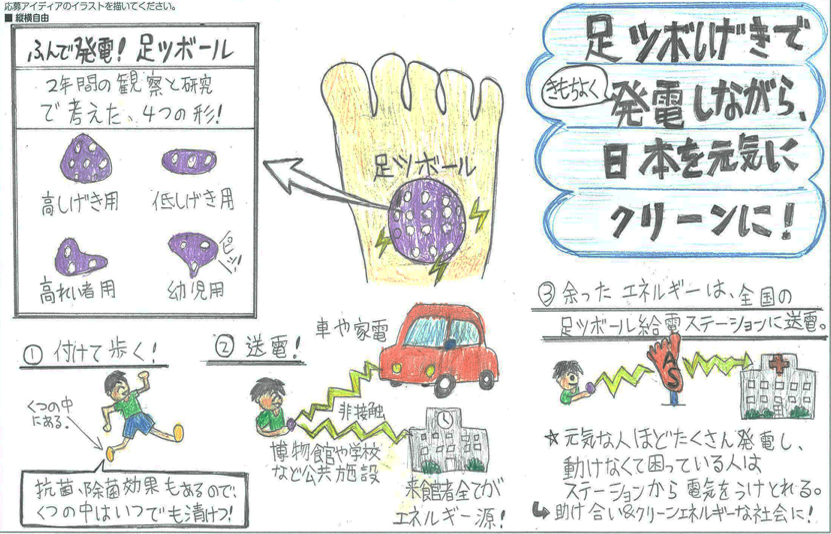 応募アイディアのイラストを描いてください。
■ 縦横自由
ふんで発電！足ツボール
2年間の観察と研究
で考えた、4つの形！
高しげき用
低しげき用
高れい者用
幼児用
ピピッ!!
足ツボール
足ツボしげきで
きもちよく
発電しながら、
日本を元気に
クリーンに！
① 付けて歩く！
くつの中
にある。
抗菌、除菌効果もあるので、
くつの中はいつでも清けつ！
② 送電！
車や家電
非接触
博物食官や学校
など公共施設
来館者全てが
エネルギー源！
③ 余ったエネルギーは、全国の
足ツボール給電ステーションに送電。
AS
☆元気な人ほどたくさん発電し、
動けなくて困っている人は
ステーションから電気をうけとれる。
↳助け合い&クリーンエネルギーな社会に！